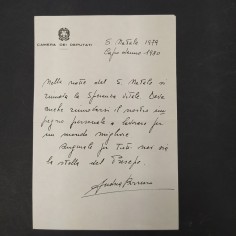 CAMERA DEI DEPUTATI
S. Natale 1979
Capo d'anno 1980
Nella notte del S. Natale si
rinnova la Speranza vitale. Deve
anche rinnovarsi il nostro im-
pegno personale a lavorare per
un mondo migliore
Auguroni per Tutti noi
la stella del Presepe.